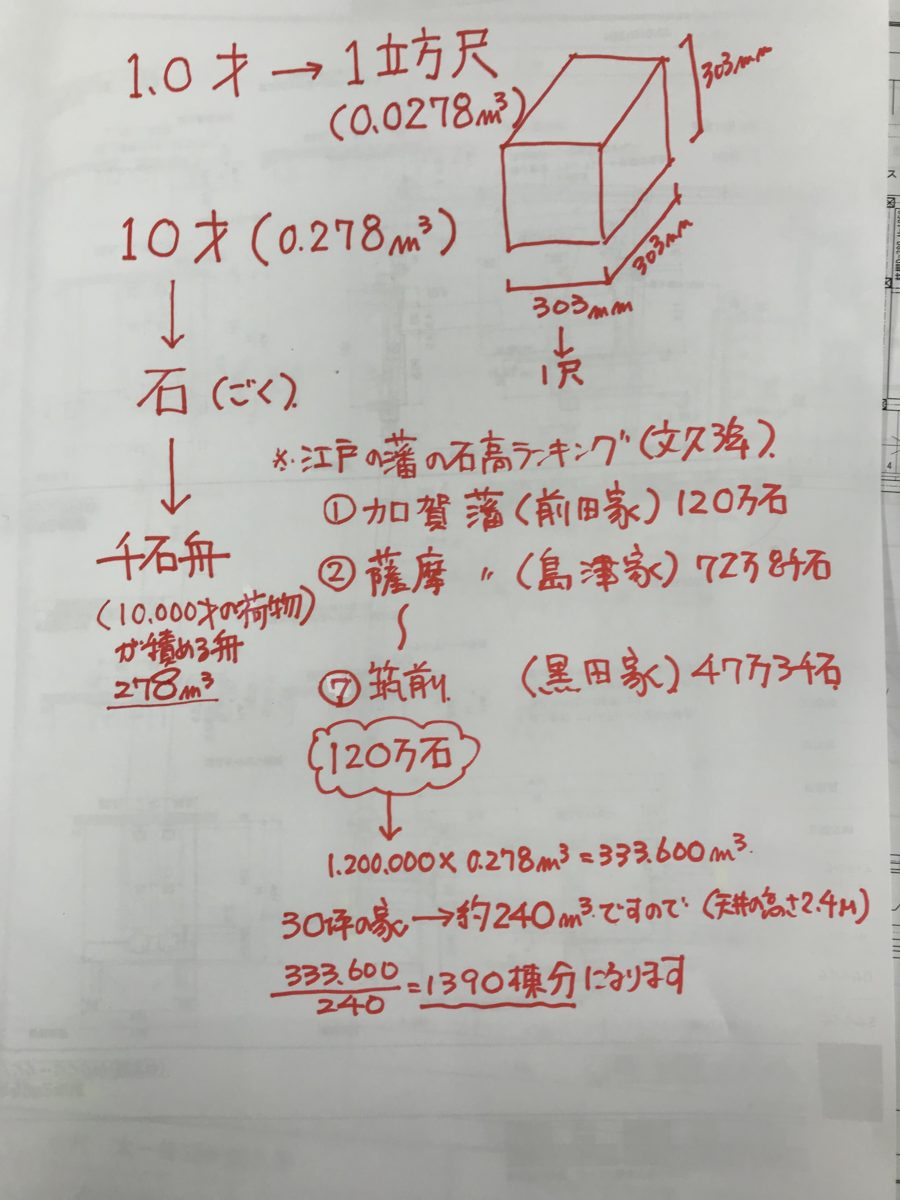 1.0才→1立方尺
(0.0278m³)
303mm
303mm
303mm
↓
1尺
10才(0.278m³)
↓
石(ごく).
↓
千石舟
(10.000才の荷物)
が積める舟
278m³
※江戸の藩の石高ランキング(文久3年).
①加賀藩(前田家)120万石
②薩摩〃(島津家)72万8千石
〜
⑦筑前.(黒田家)47万3千石
120万石
↓
1.200.000×0.278m³=333.600m³.
30坪の家→約240m³ですので(天井の高さ2.4M)
333.600/240=1390棟分になります